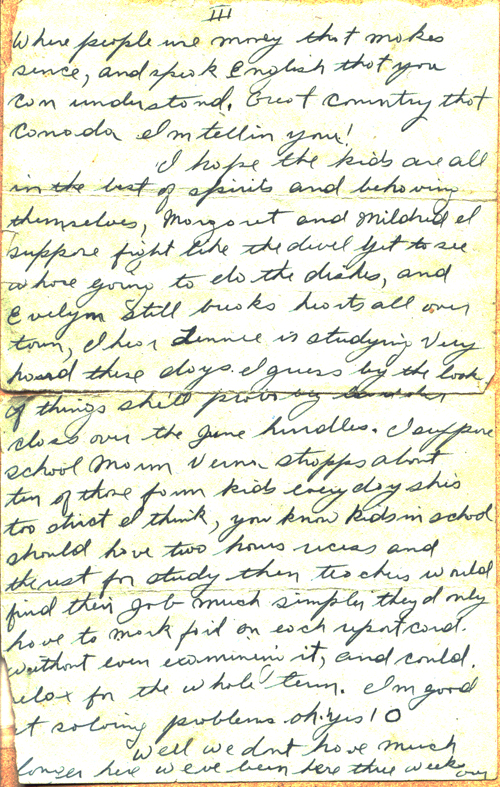 III
Where people use money that makes
sence, and speak English that you
can understand. Great country that
Canada I'm tellin you!
I hope the kids are all
in the best of spirits and behaving
themselves, Margaret and Mildred I
suppose fight like the devil yet to see
whose going to do the dishes, and
Evelyn still breaks hearts all over
town, I hear Lennie is studying very
hard these days. I guess by the look
of things she'll probably
class over the June hurdles. I suppose
school Marm Verna stropps about
ten of those farm kids every day she's
too strict I think, you know kids in school
should have two hours recess and
the rest for study then teachers would
find their job much simpler they'd only
have to mark fail on each report card.
without even examinin it, and could.
relax for the whole term. I'm good
at solving problems oh! yes! O
Well we dont have much
longer here we've been here three weeks our